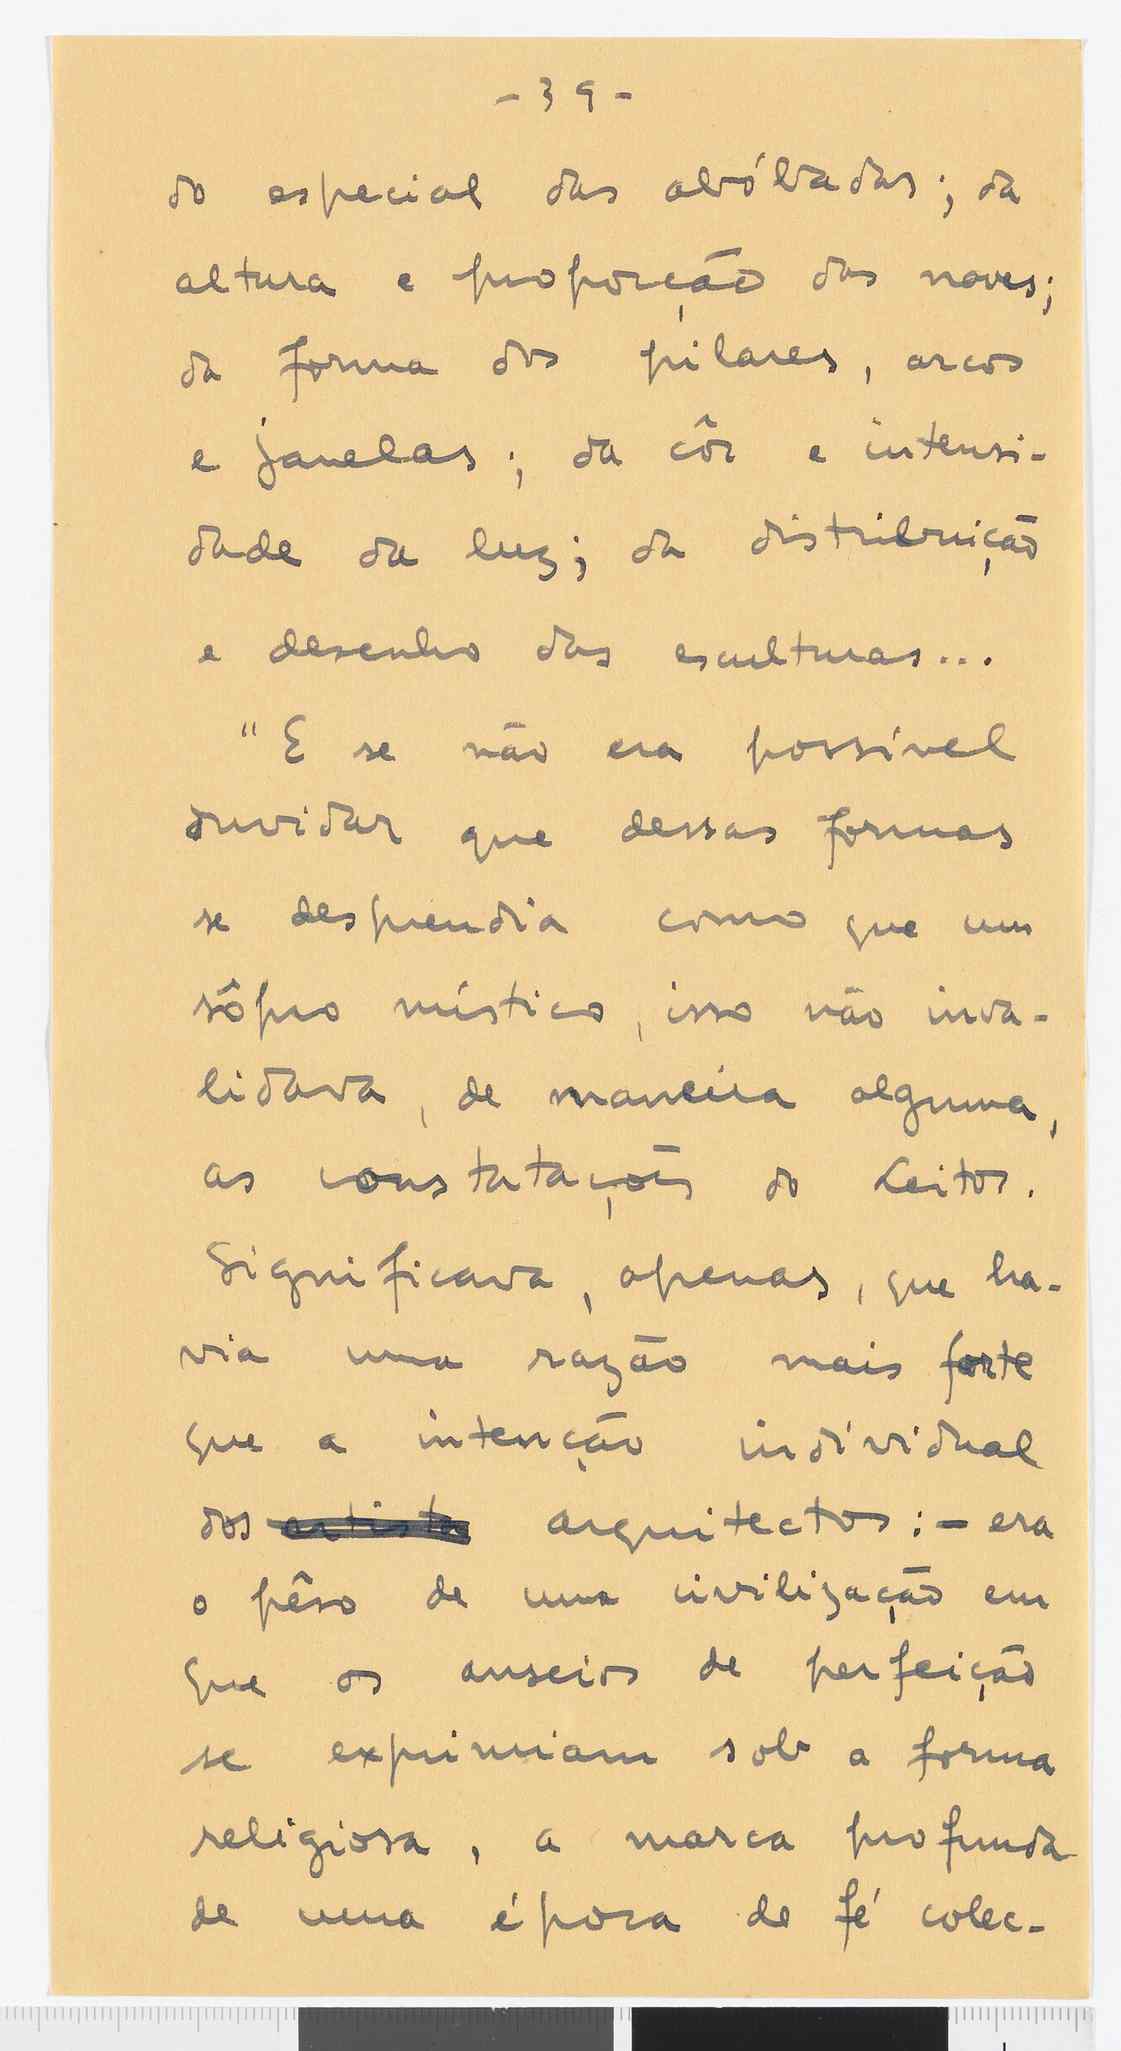 - 39 -
do especial das abóbadas; da
altura e proporção das naves;
da forma dos pilares, arcos
e janelas; da côr e intensi-
dade da luz; da distribuição
e desenho das esculturas...
"E se não era possível
duvidar que dessas formas
se desprendia como que um
sôpro místico, isso não inva-
lidava, de maneira alguma,
as constatações do Leitor.
Significava, apenas, que ha-
via uma razão mais forte
que a intenção individual
dos artistas arquitectos: - era
o pêso de uma civilização em
que os anseios de perfeição
se exprimiam sob a forma
religiosa, a marca profunda
de uma época de fé colec-